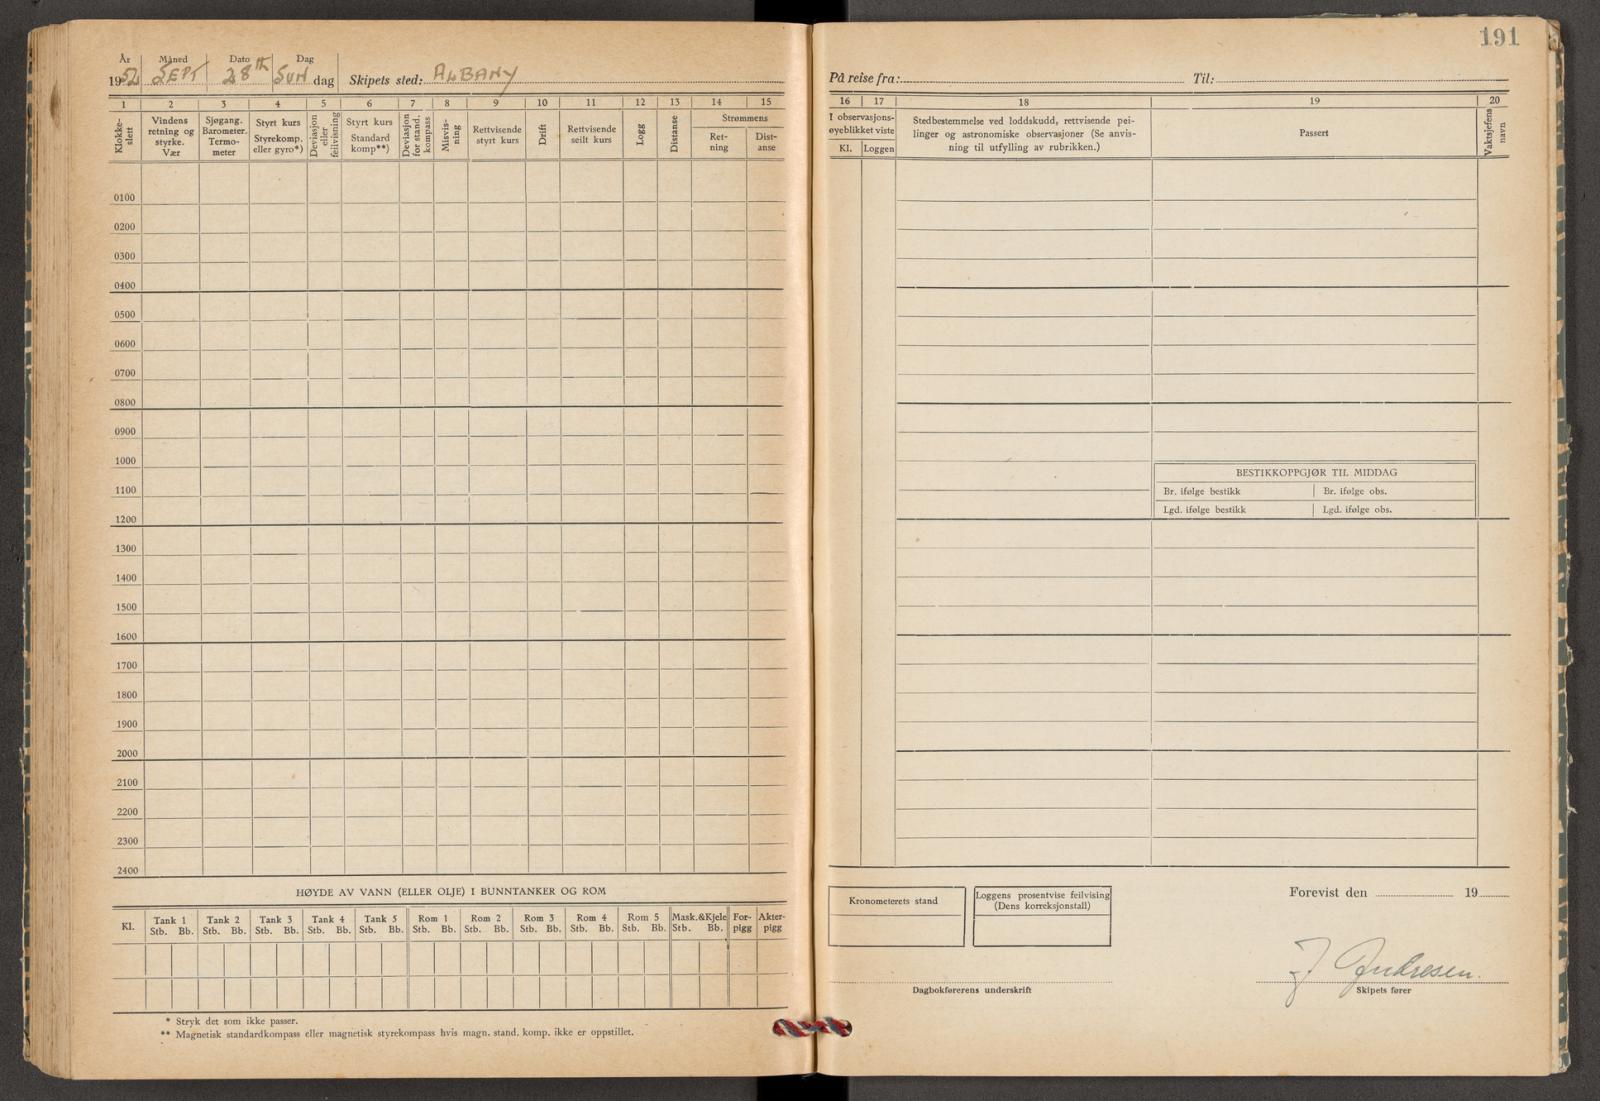 191
År Måned Dato Dag
1952 SEPT 28th SUN dag Skipets sted: ALBANY
På reise fra: Til:
1 2 3 4 5 6 7 8 9 10 11 12 13 14 15
Klokke-
slett
Vindens
retning og
styrke.
Vær
Sjøgang.
Barometer.
Termo-
meter
Styrt kurs
Styrekomp.
eller gyro*)
Deviasjon
eller
feilvisning
Styrt kurs
Standard
komp**)
Deviasjon
for stand.
kompass
Misvis-
ning
Rettvisende
styrt kurs
Drift
Rettvisende
seilt kurs
Logg
Distanse
Strømmens
Ret-
ning
Dist-
anse
0100
0200
0300
0400
0500
0600
0700
0800
0900
1000
1100
1200
1300
1400
1500
1600
1700
1800
1900
2000
2100
2200
2300
2400
HØYDE AV VANN (ELLER OLJE) I BUNNTANKER OG ROM
Kl. Tank 1 Tank 2 Tank 3 Tank 4 Tank 5 Rom 1 Rom 2 Rom 3 Rom 4 Rom 5 Mask.&Kjele For- Akter-
Stb. Bb. Stb. Bb. Stb. Bb. Stb. Bb. Stb. Bb. Stb. Bb. Stb. Bb. Stb. Bb. Stb. Bb. Stb. Bb. Stb. Bb. pigg pigg
* Stryk det som ikke passer.
** Magnetisk standardkompass eller magnetisk styrekompass hvis magn. stand. komp. ikke er oppstillet.
16 17 18 19 20
I observasjons-
øyeblikket viste
Kl. Loggen
Stedbestemmelse ved loddskudd, rettvisende pei-
linger og astronomiske observasjoner (Se anvis-
ning til utfylling av rubrikken.)
Passert
Vaktsjefens
navn
BESTIKKOPPGJØR TIL MIDDAG
Br. ifølge bestikk Br. ifølge obs.
Lgd. ifølge bestikk Lgd. ifølge obs.
Kronometerets stand
Loggens prosentvise feilvising
(Dens korreksjonstall)
Forevist den 19
J. Andresen.
Dagbokførerens underskrift
Skipets fører